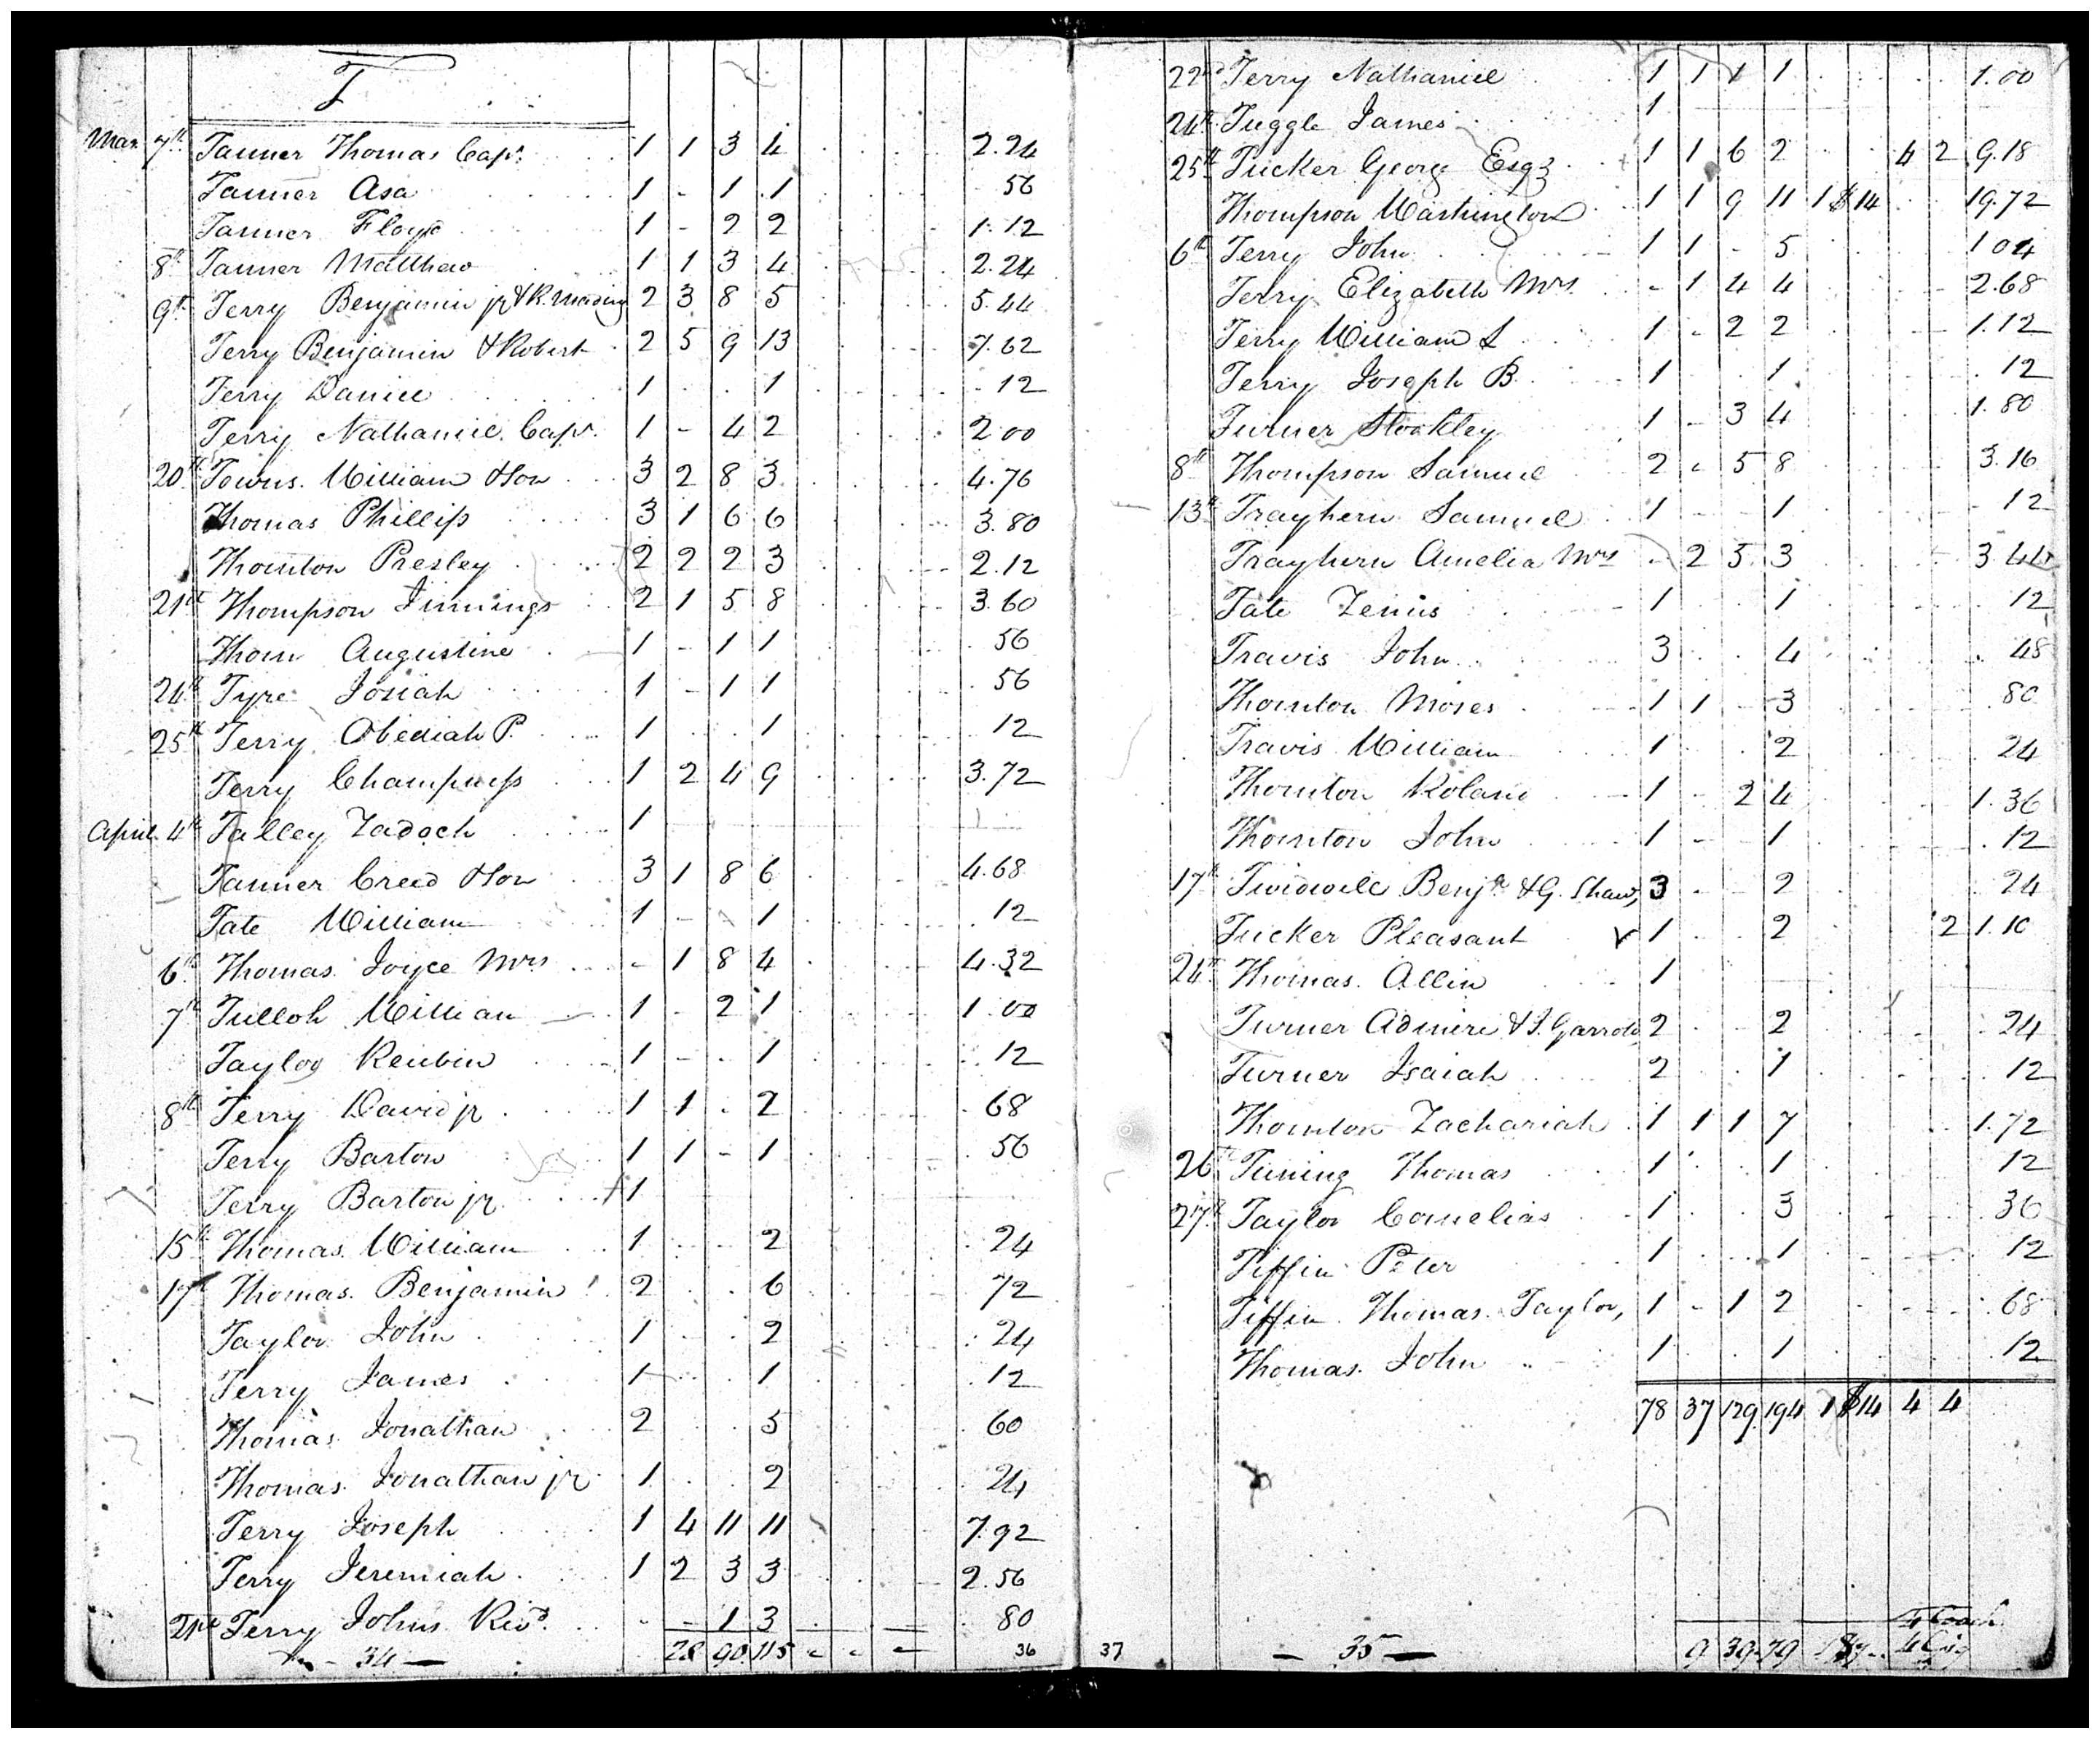 T
Mar. 7th Tanner Thomas Capt. 1 1 3 4 2.24
Tanner Asa 1 - 1 1 56
Tanner Floyd 1 - 2 2 1.12
8th Tanner Matthew 1 1 3 4 2.24
9th Terry Benjamin jr & R. Mading 2 3 8 5 5.44
Terry Benjamin & Robert 2 5 9 13 7.62
Terry Daniel 1 . . 1 12
Terry Nathaniel Capt. 1 - 4 2 2.00
20th Towns William & Son 3 2 8 3 4.76
Thomas Phillip 3 1 6 6 3.80
Thornton Presley 2 2 2 3 2.12
21st Thompson Jinnings 2 1 5 8 3.60
Thom Augustine 1 - 1 1 56
24th Tyre Josiah 1 - 1 1 56
25th Terry Obediah P. 1 . . 1 12
Terry Champness 1 2 4 9 3.72
April 4th Talley Zadoch 1
Tanner Creed & Son 3 1 8 6 4.68
Tate William 1 - . 1 12
6th Thomas Joyce Mrs - 1 8 4 4.32
7th Tulloh William 1 . 2 1 1.00
Taylor Reubin 1 - . 1 12
8th Terry David jr 1 1 . 2 68
Terry Barton 1 1 - 1 56
Terry Barton jr. 1
15th Thomas William 1 . . 2 24
17th Thomas Benjamin 2 . . 6 72
Taylor John 1 . . 2 24
Terry James 1 . . 1 12
Thomas Jonathan 2 . . 5 60
Thomas Jonathan jr. 1 . . 2 24
Terry Joseph 1 4 11 11 7.92
Terry Jeremiah 1 2 3 3 2.56
21st Terry Johns Revd. - - 1 3 80
- 34 - 28 90 115 - - - 36
22d Terry Nathaniel 1 1 1 1 1.00
24th Tuggle James 1
25th Tucker George Esqr 1 1 6 2 4 2 9.18
Thompson Washington 1 1 9 11 1 $14 19.72
6th Terry John 1 1 - 5 1 04
Terry Elizabeth Mrs. - 1 4 4 2.68
Terry William L 1 - 2 2 1.12
Terry Joseph B. 1 . . 1 12
Turner Stockley 1 - 3 4 1.80
8th Thompson Samuel 2 - 5 8 3.16
13th Trayhern Samuel 1 - - 1 12
Trayhern Amelia Mrs - 2 5 3 3 44
Tate Zenus 1 . . 1 12
Travis John 3 . . 4 48
Thornton Moses 1 1 - 3 80
Travis William 1 . . 2 24
Thornton Roland 1 - 2 4 1.36
Thornton John 1 - . 1 12
17th Twidwell Benja & G. Shaw, 3 - - 2 24
Tucker Pleasant 1 . . 2 2 1.10
24th Thomas Allin 1
Turner Admire & J. Garrott 2 . . 2 24
Turner Isaiah 2 . . 1 12
Thornton Zachariah 1 1 1 7 1.72
26th Tuning Thomas 1 . . 1 12
27th Taylor Cornelias 1 . . 3 36
Tiffin Peter 1 . . 1 12
Tiffin Thomas Taylor, 1 - 1 2 68
Thomas John 1 . . 1 12
78 37 129 194 1 $14 4 4
37 - 35 - 9 39 79